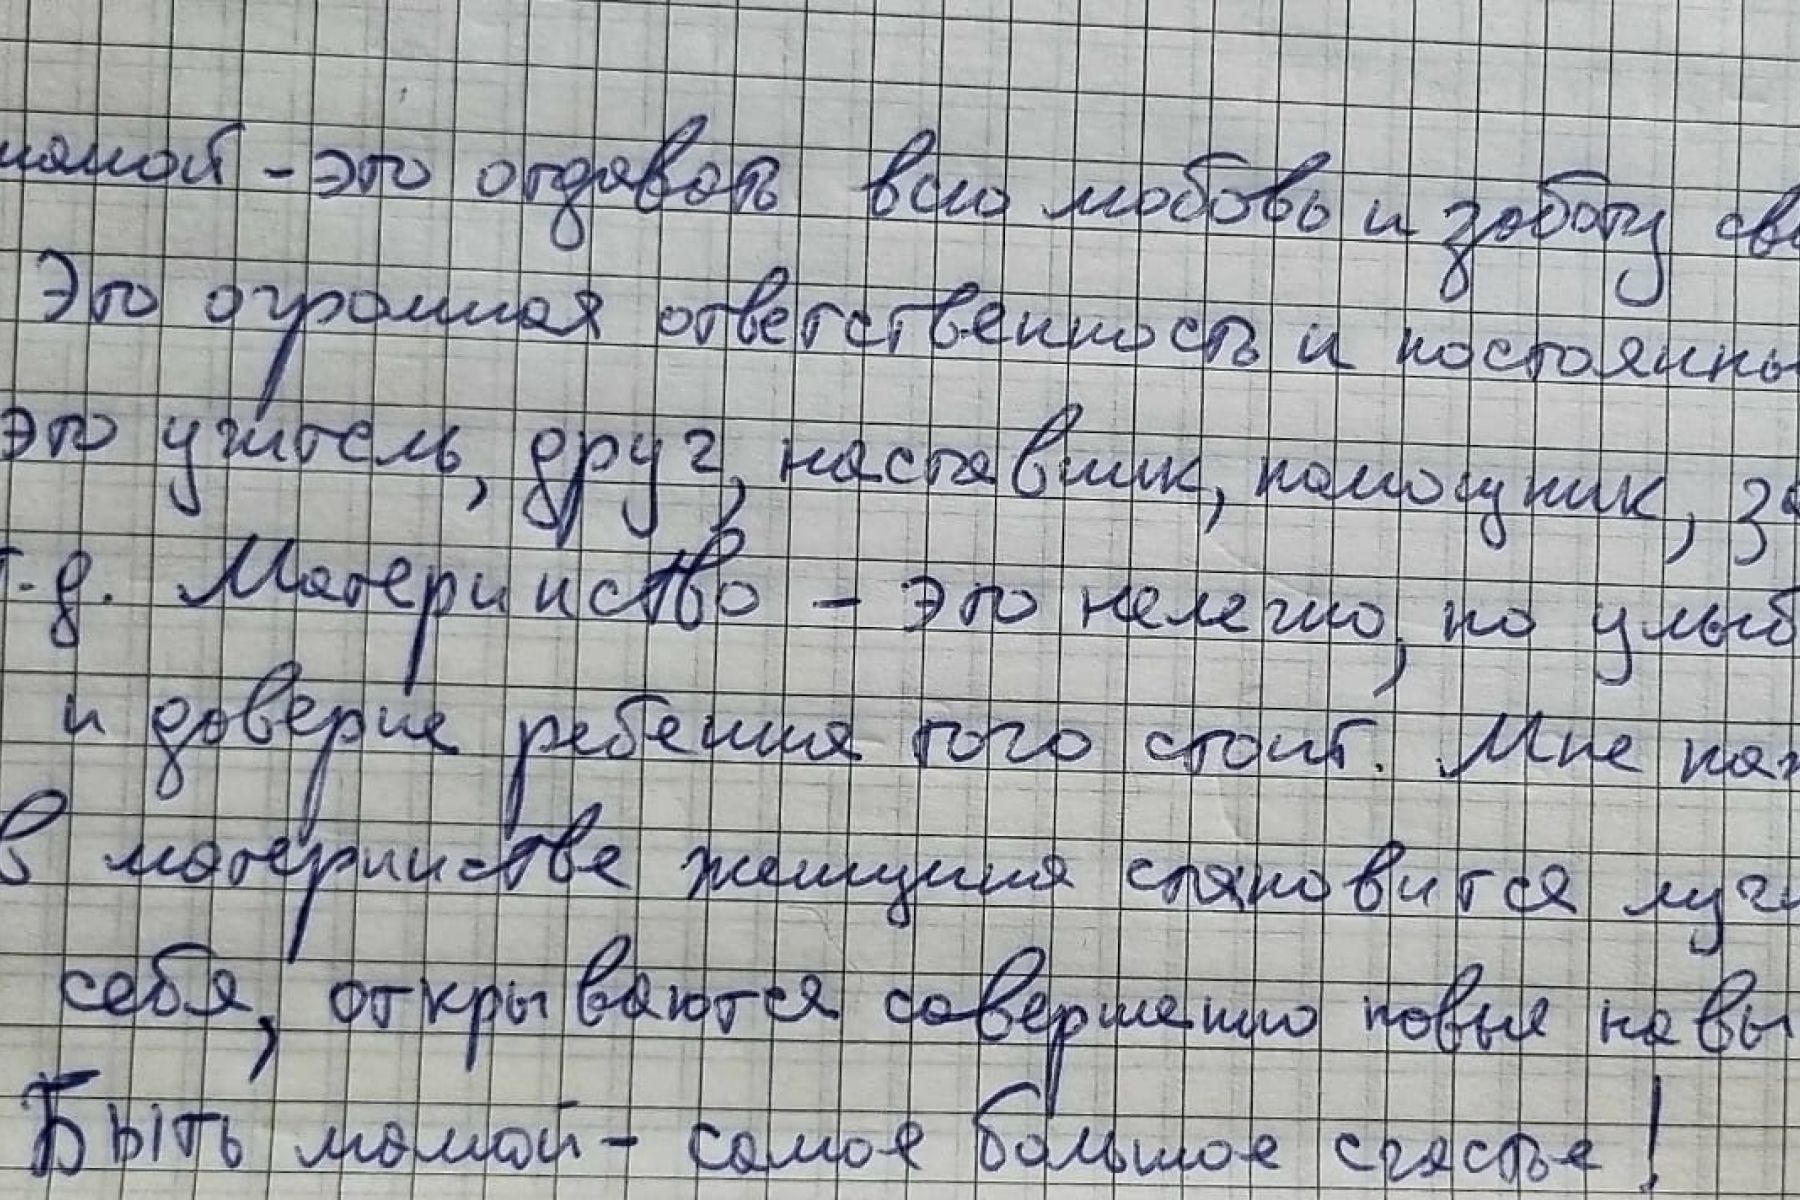 мамой - это отдавать всю любовь и заботу сво
Это огромная ответственность и постоянны
это учитель, друг, наставник, помощник, за
т.д. Материнство - это нелегко, но улыб
и доверие ребенка того стоит. Мне каж
в материнстве женщина становится луч
себя, открываются совершенно новые навы
Быть мамой - самое большое счастье!